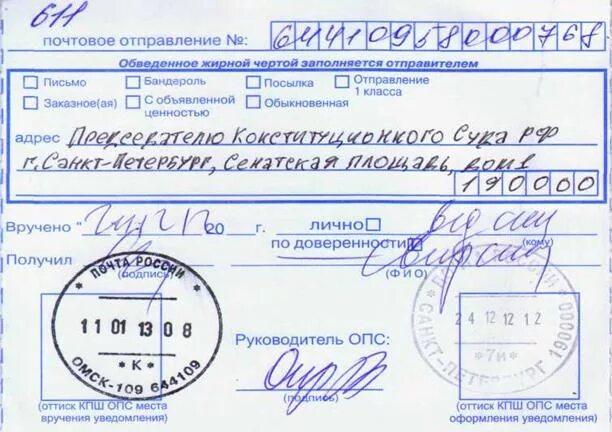 611
почтовое отправление №: 64410958000768
Обведенное жирной чертой заполняется отправителем
Письмо Бандероль Посылка Отправление 1 класса
Заказное(ая) С объявленной ценностью Обыкновенная
адрес Председателю Конституционного Суда РФ
г. Санкт-Петербург, Сенатская площадь, дом 1
190000
Вручено 20 г. лично
(кому)
по доверенности
Получил
(подпись) (ФИО)
ПОЧТА РОССИИ
11 01 13 08
* К *
ОМСК-109 644109
Руководитель ОПС:
(подпись)
24 12 12 12
*7и*
САНКТ-ПЕТЕРБУРГ 190000
(оттиск КПШ ОПС места вручения уведомления)
(оттиск КПШ ОПС места оформления уведомления)